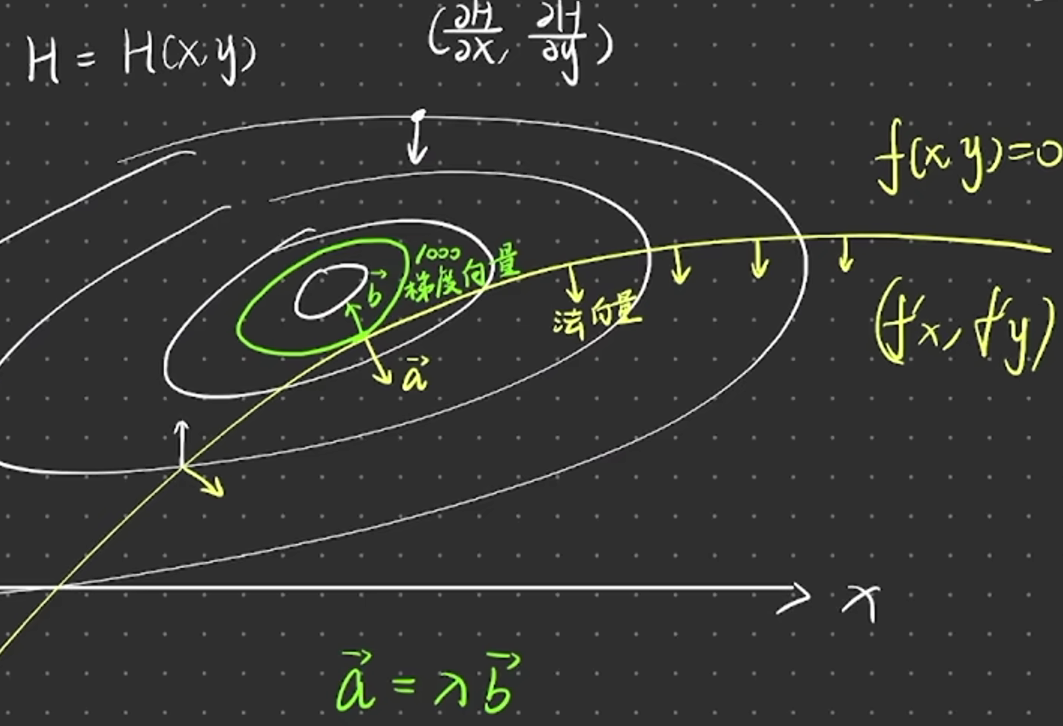 H = H(x,y)
(∂H/∂x, ∂H/∂y)
f(x,y)=0
1000
梯度向量
b⃗
法向量
(f'x, f'y)
a⃗
x
a⃗ = λb⃗